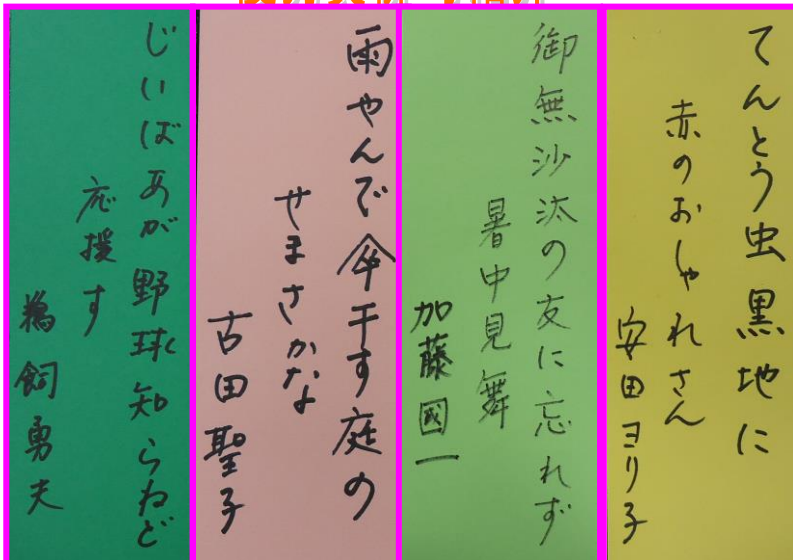 てんとう虫黒地に
赤のおしゃれさん
安田ヨリ子
御無沙汰の友に忘れず
暑中見舞
加藤國一
雨やんで傘干す庭の
せまさかなよ
古田聖子
じいばあが野球知らねど
応援す
鵜飼勇夫